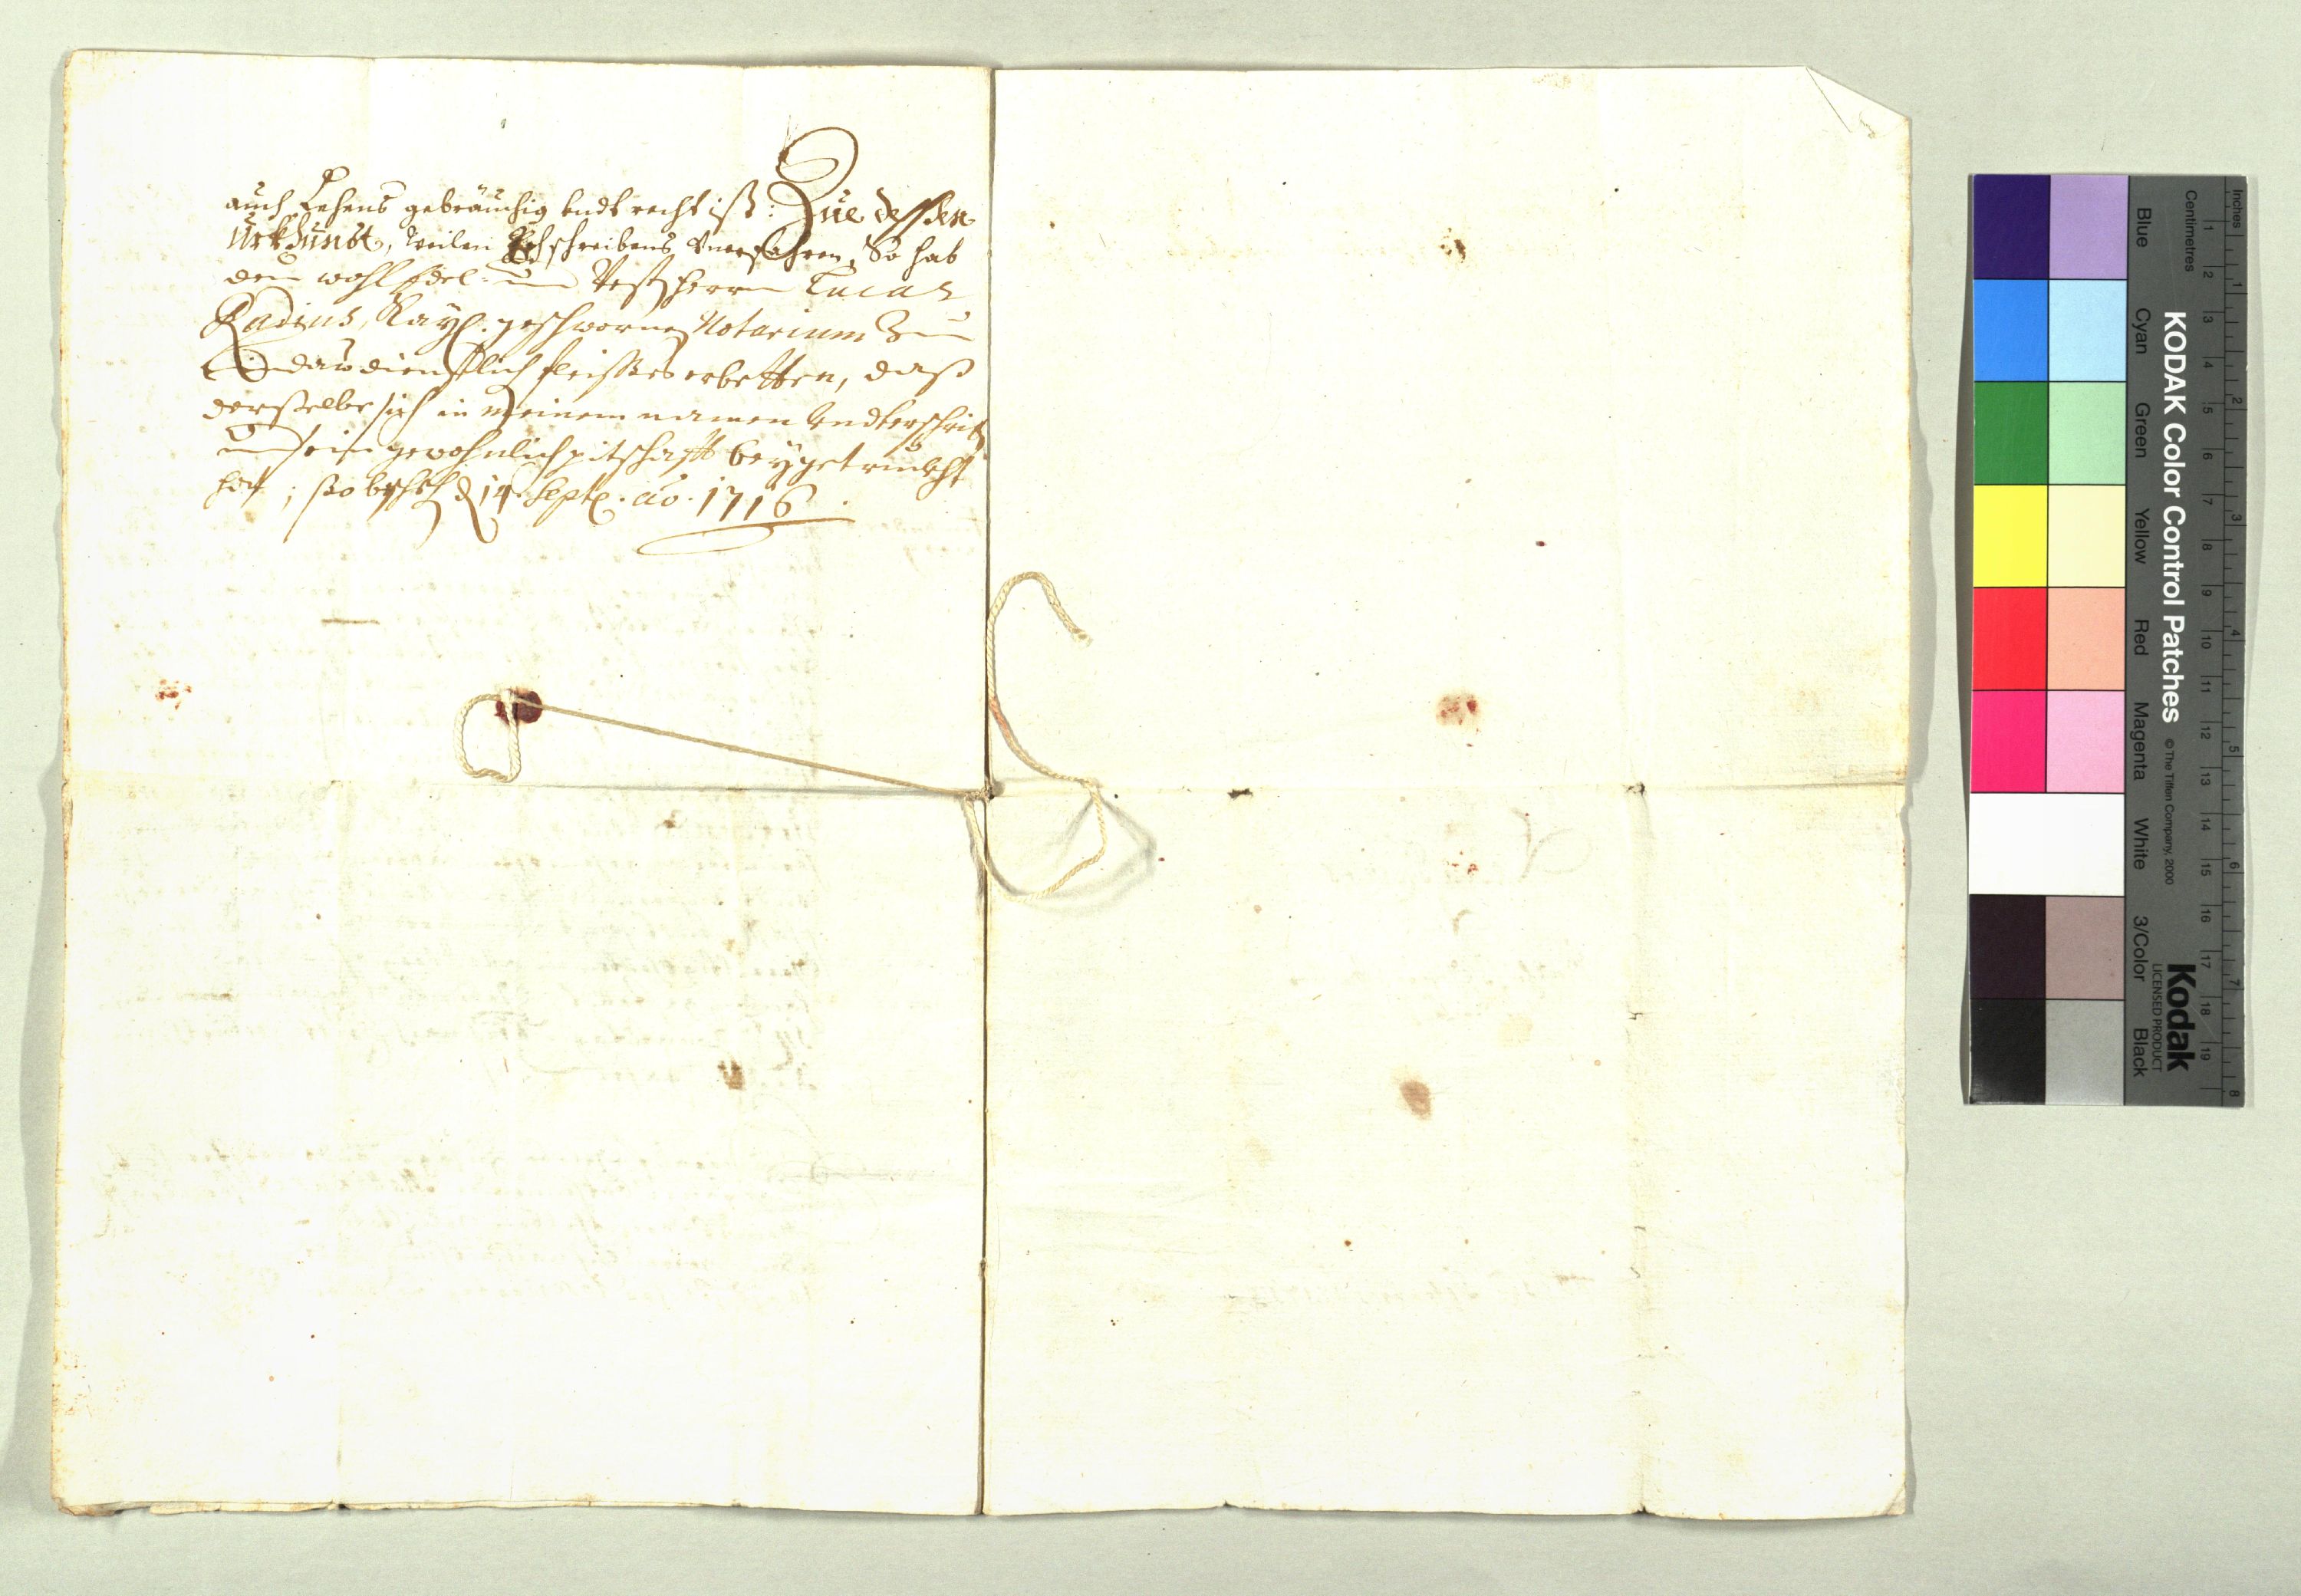 auch Lehens gebräuchig undt recht ist: Zue dessen
Urkhundt, weilen Ich schreibens Unerfahren, So hab
den wohl Edel- und Vest Herrn Lucas
Radius, Kayl: geschwornen Notarium Zu
dienstlich fleisses erbetten, dass
derselbe sich in meinem namen Undterschrib
und sein gewohnlich pitschafft beygetruckht
hat; so beschehen d 14 Septe. ao. 1716.
KODAK Color Control Patches
© The Tiffen Company, 2000
Kodak
LICENSED PRODUCT
Inches
Centimetres
Blue Cyan Green Yellow Red Magenta White 3/Color Black
1 2 3 4 5 6 7 8
1 2 3 4 5 6 7 8 9 10 11 12 13 14 15 16 17 18 19